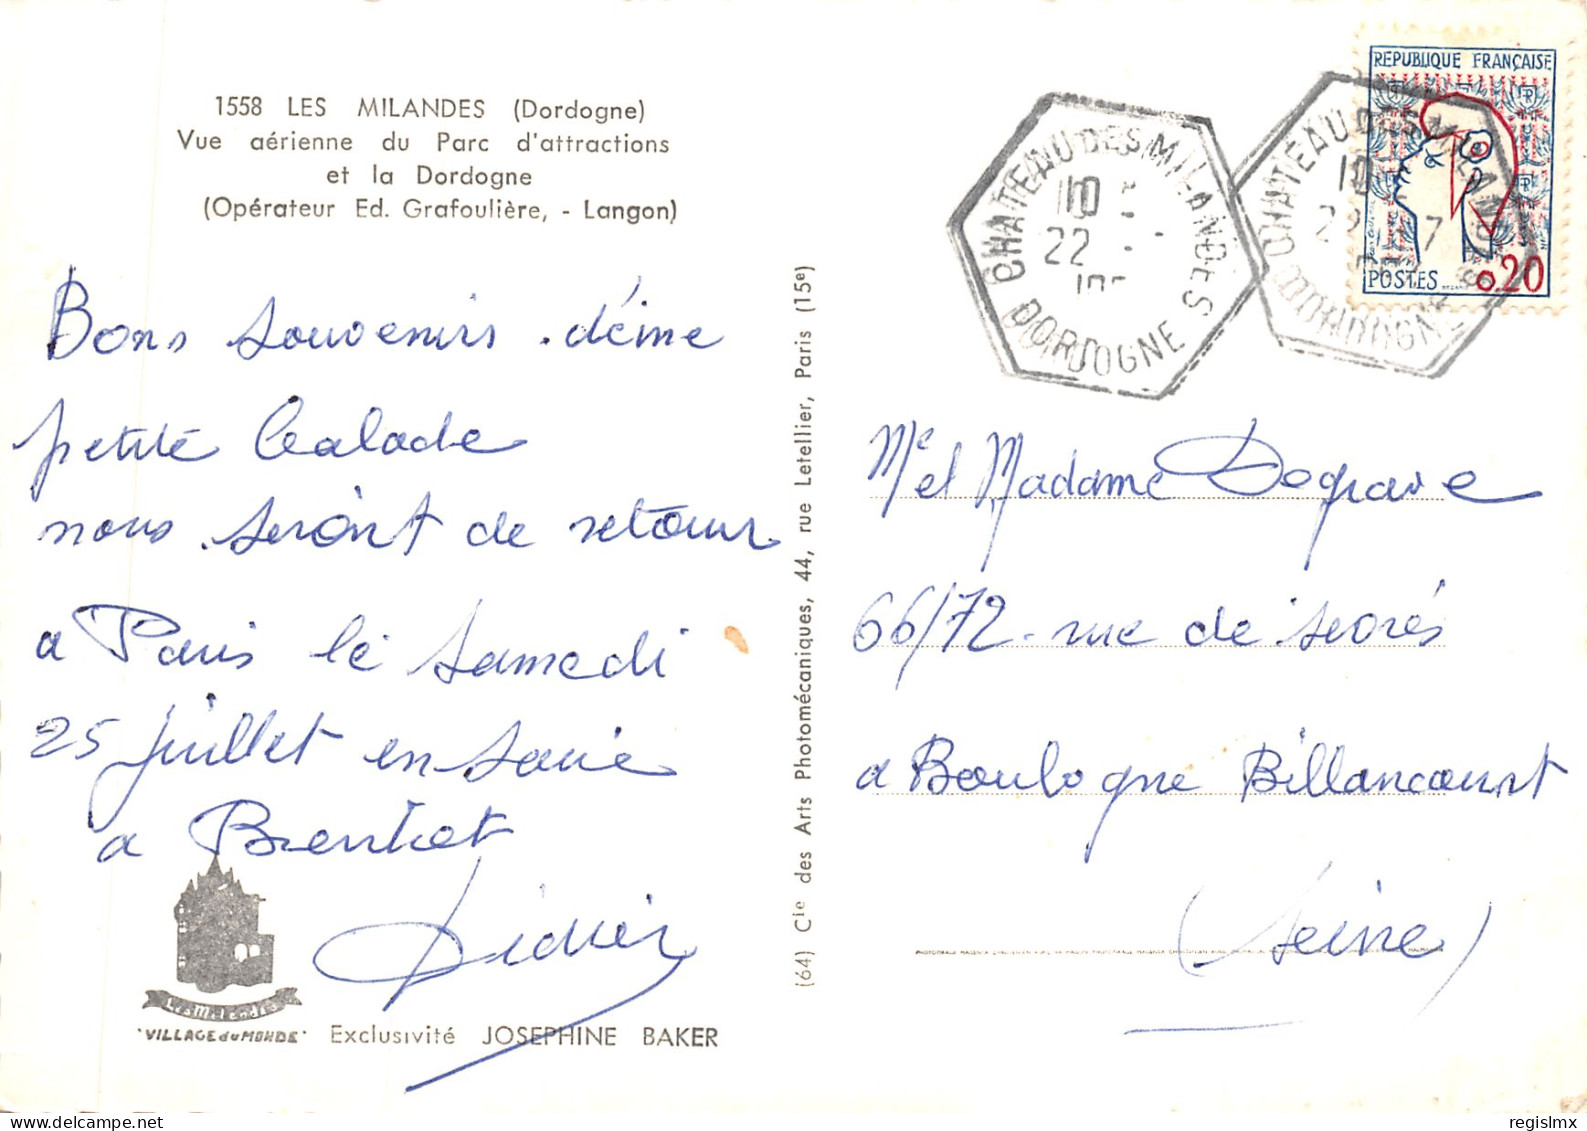 1558 LES MILANDES (Dordogne)
Vue aérienne du Parc d'attractions
et la Dordogne
(Opérateur Ed. Grafoulière, - Langon)
Bons souvenirs d'une
petite balade
nous seront de retour
a Paris le samedi
25 juillet en
a
Didier
Les Milandes
"VILLAGE du MONDE"
Exclusivité JOSEPHINE BAKER
(64) Cie des Arts Photomécaniques, 44, rue Letellier, Paris (15e)
CHATEAU DES MILANDES
10
22
DORDOGNE
CHATEAU DES MILANDES
10
22 - 7
DORDOGNE
REPUBLIQUE FRANÇAISE
POSTES 0,20
Mr et Madame Degrave
66/72 rue de sevrés
a Boulogne Billancourt
(Seine)
regislmx